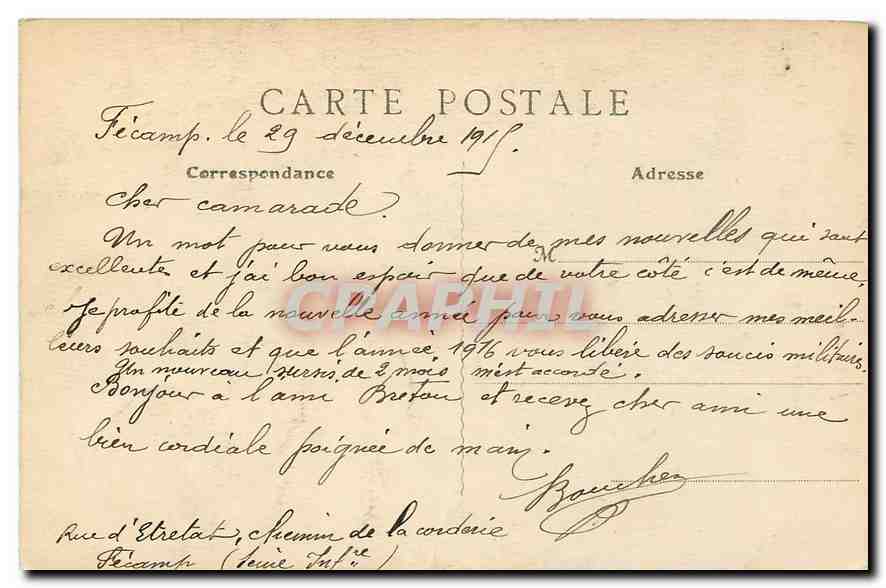 CARTE POSTALE
Fécamp. le 29 décembre 1915.
Correspondance
Adresse
cher camarade.
Un mot pour vous donner de mes nouvelles qui sont
M
excellentes et j'ai bon espoir que de votre côté c'est de même,
Je profite de la nouvelle année pour vous adresser mes meil-
leurs souhaits et que l'année 1916 vous libère des soucis militaires.
Un nouveau sursis de 2 mois m'est accordé.
Bonjour à l'ami Breton et recevez cher ami une
bien cordiale poignée de main.
Boucher
Rue d'Etretat, chemin de la corderie
Fécamp (Seine Infre)
CPAPHIL